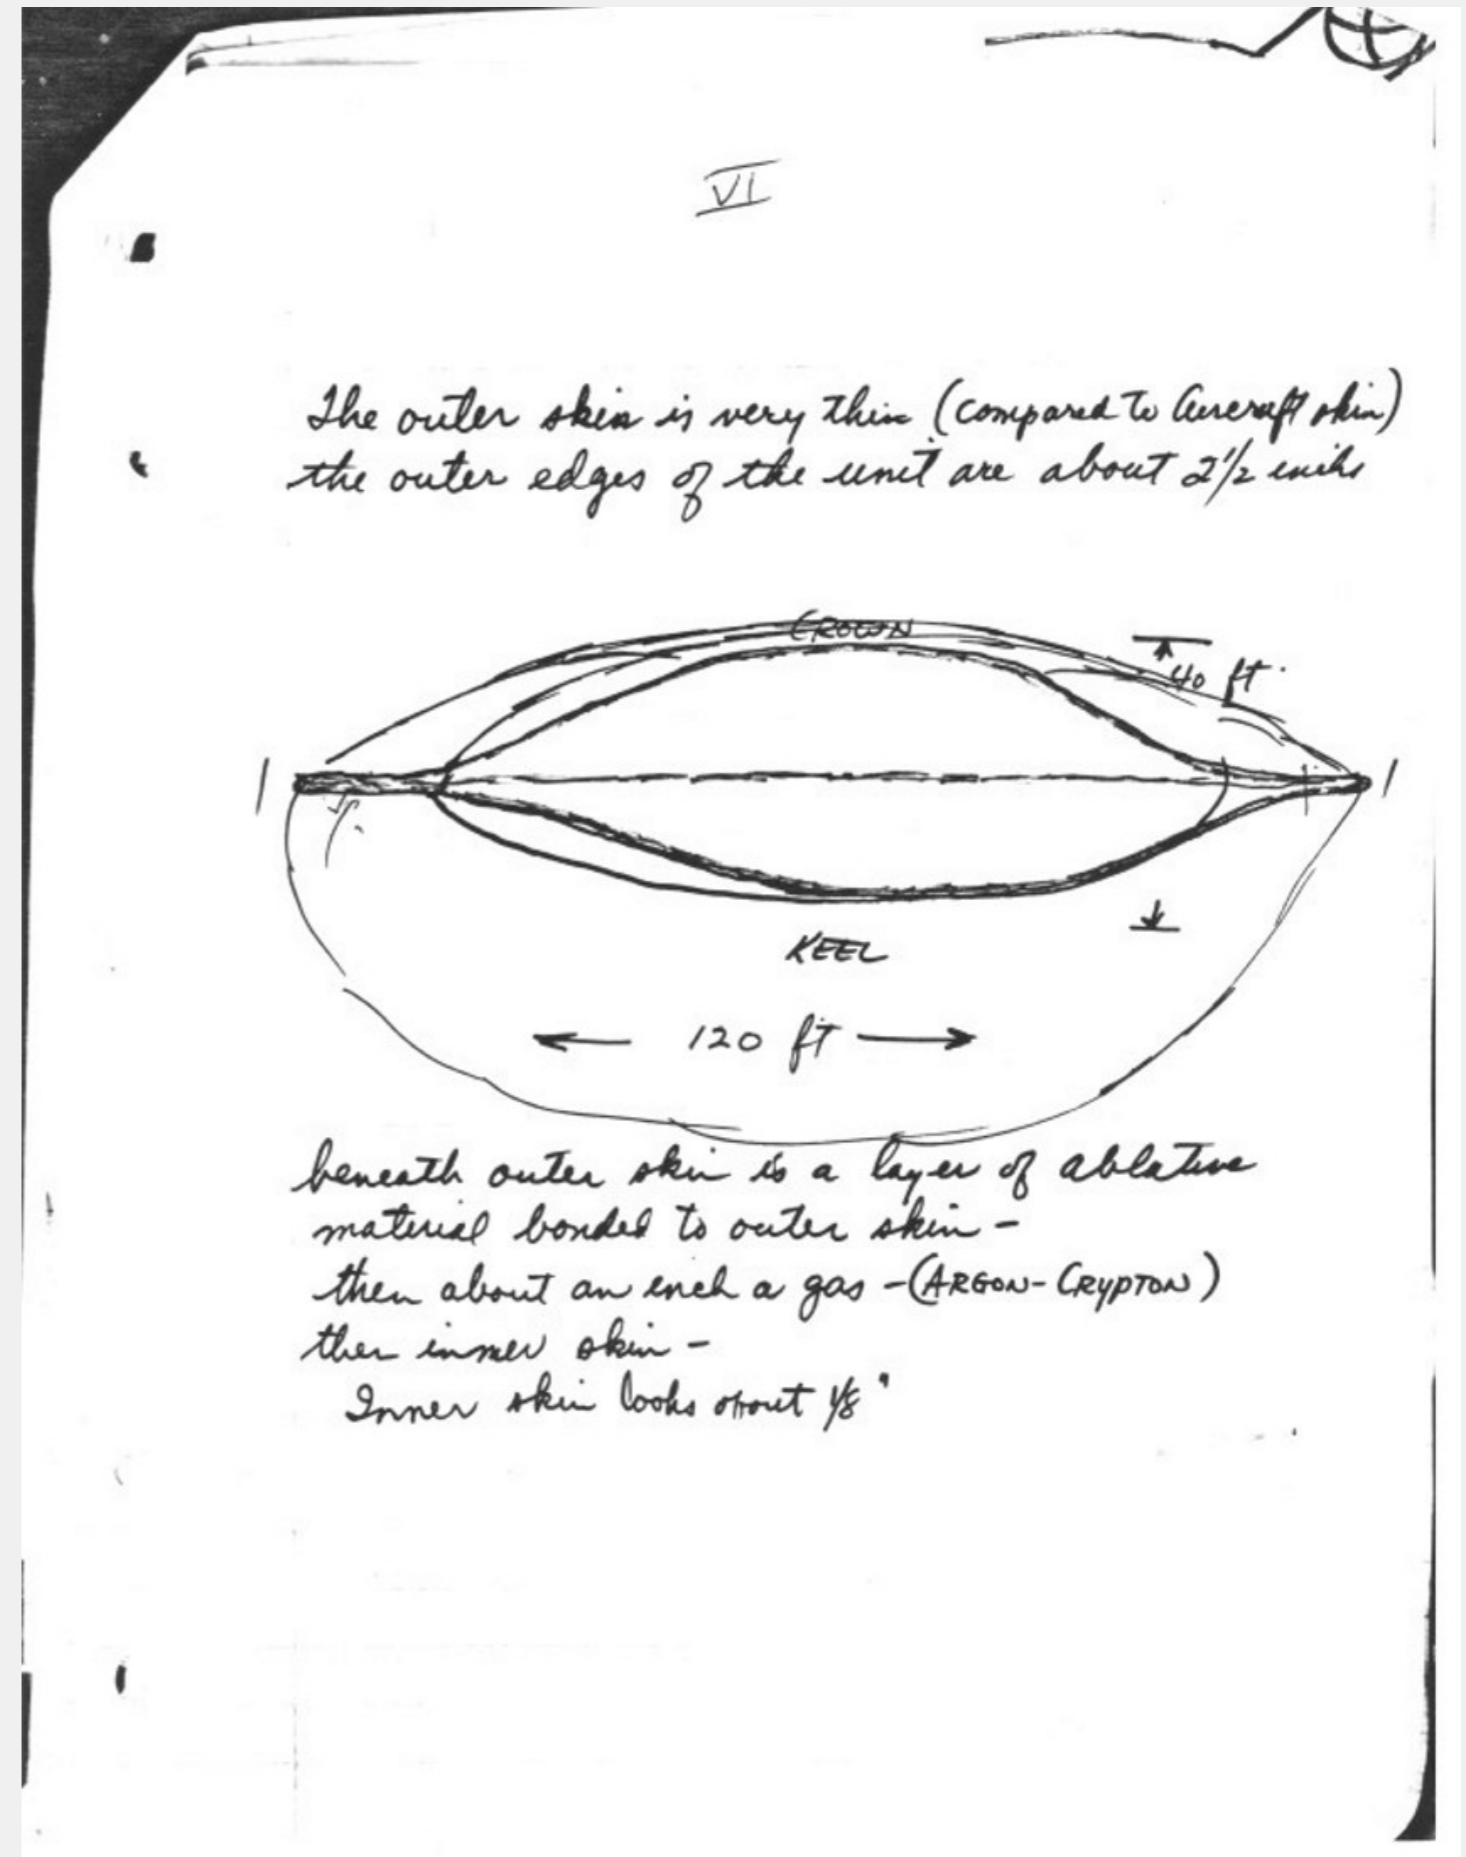 VI
The outer skin is very thin (compared to Aircraft skin)
the outer edges of the unit are about 2 1/2 inches
CROWN
40 ft.
KEEL
120 ft
beneath outer skin is a layer of ablative
material bonded to outer skin -
then about an inch a gas - (ARGON - CRYPTON)
then inner skin -
Inner skin looks about 1/8"